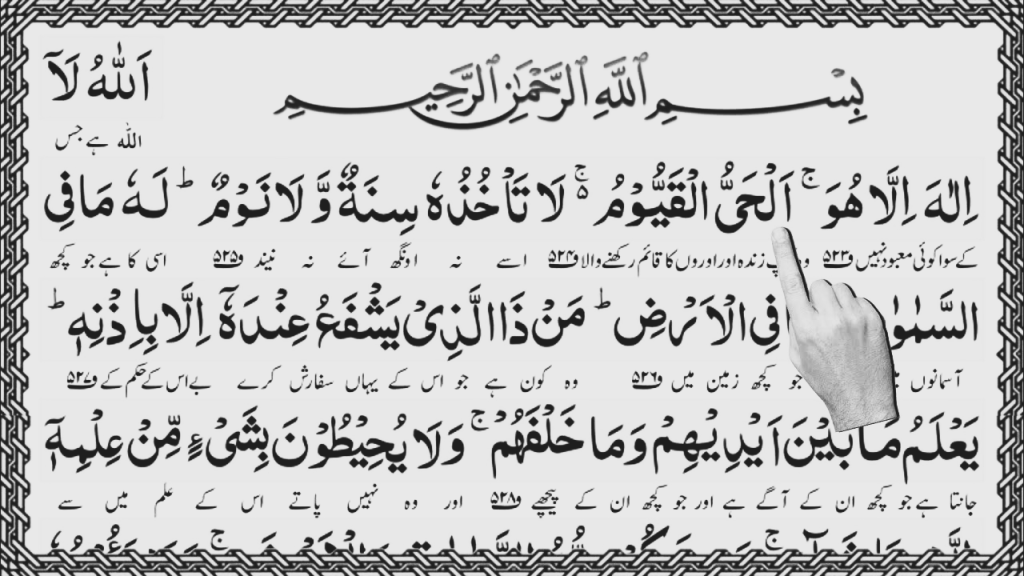 بِسْمِ ٱللَّهِ ٱلرَّحْمَٰنِ ٱلرَّحِيمِ
اَللّٰهُ لَاۤ
اللہ ہے جس
اِلٰهَ اِلَّا هُوَ ۚ اَلْحَیُّ الْقَیُّوْمُ ۬ۚ لَا تَاْخُذُهٗ سِنَةٌ وَّ لَا نَوْمٌ ؕ لَهٗ مَا فِی
کے سوا کوئی معبود نہیں و۵۲۳ وہ زندہ اور اوروں کا قائم رکھنے والا و۵۲۴ اسے نہ اونگھ آئے نہ نیند و۵۲۵ اسی کا ہے جو کچھ
السَّمٰوٰ فِی الْاَرْضِ ؕ مَنْ ذَا الَّذِیْ یَشْفَعُ عِنْدَهٗۤ اِلَّا بِاِذْنِهٖ ؕ
آسمانوں جو کچھ زمین میں و۵۲۶ وہ کون ہے جو اس کے یہاں سفارش کرے بے اس کے حکم کے و۵۲۷
یَعْلَمُ مَا بَیْنَ اَیْدِیْهِمْ وَ مَا خَلْفَهُمْ ۚ وَ لَا یُحِیْطُوْنَ بِشَیْءٍ مِّنْ عِلْمِهٖۤ
جانتا ہے جو کچھ ان کے آگے ہے اور جو کچھ ان کے پیچھے و۵۲۸ اور وہ نہیں پاتے اس کے علم میں سے